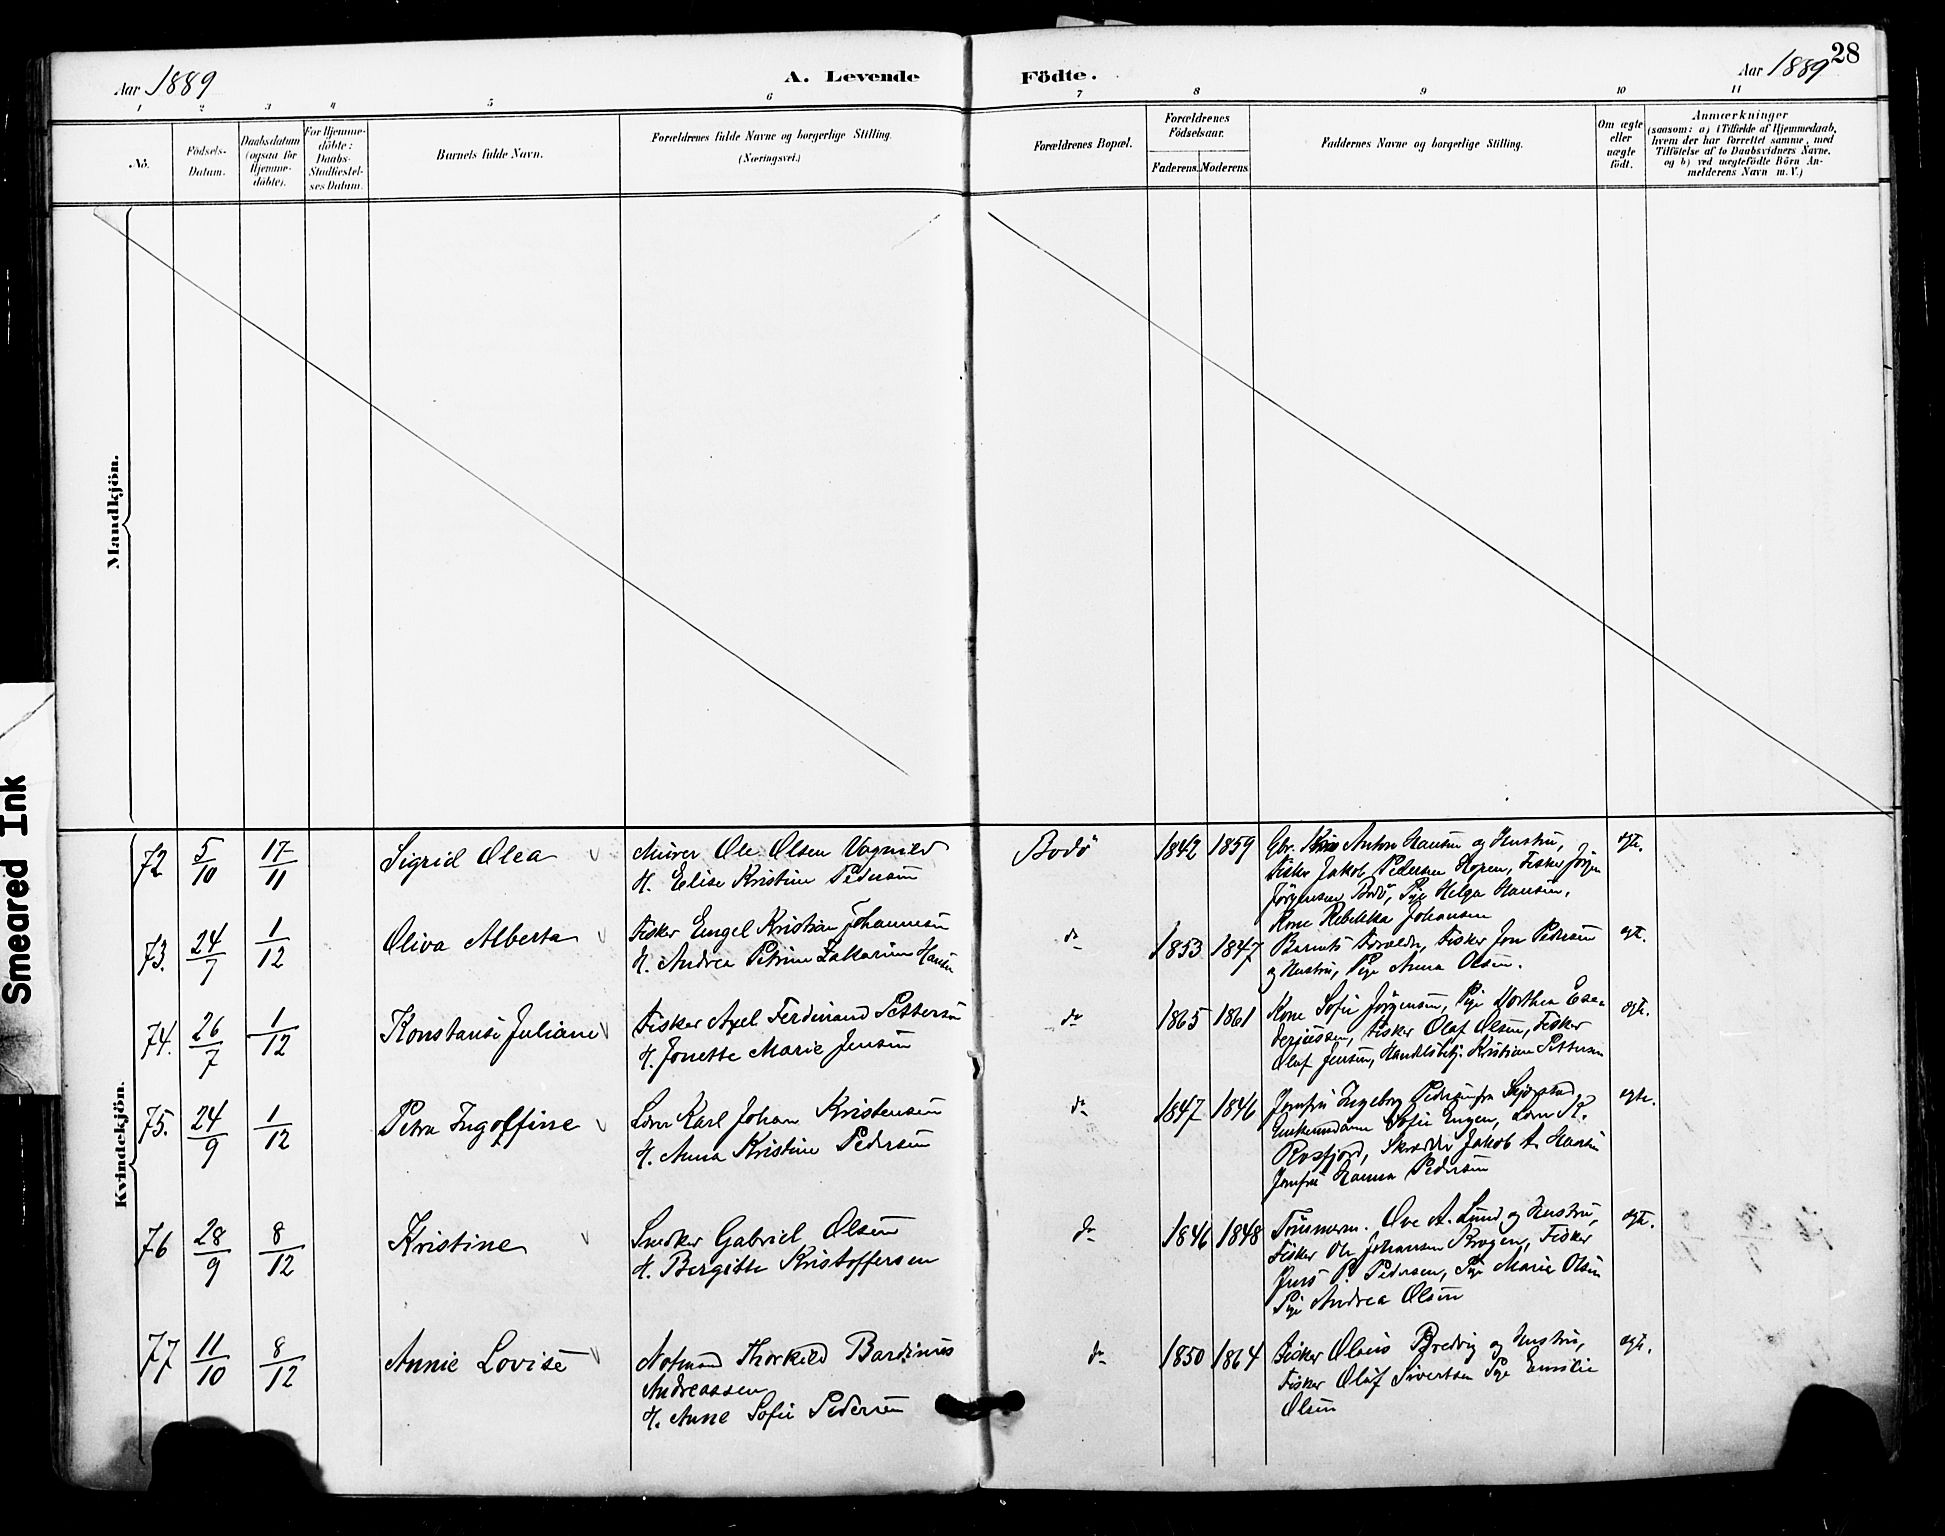 28
Aar 1889
A. Levende Födte.
Aar 1889
1 2 3 4 5 6 7 8 9 10 11
No.
Födsels-
Datum.
Daabsdatum
(ogsaa for
Hjemme-
döbte).
For Hjemme-
döbte:
Daabs-
Stadfæstel-
ses Datum.
Barnets fulde Navn.
Forældrenes fulde Navne og borgerlige Stilling.
(Næringsvei.)
Forældrenes Bopæl.
Forældrenes
Födselsaar.
Faderens. Moderens.
Faddernes Navne og borgerlige Stilling.
Om ægte
eller
uægte
födt.
Anmærkninger
(saasom: a) i Tilfælde af Hjemmedaab,
hvem der har forrettet samme, med
Tilföielse af to Daabsvidners Navne.
og b) ved uægtefödte Börn An-
melderens Navn m. V.)
Mandkjön.
Kvindekjön.
Smeared Ink
72 5/10 17/11 Sigrid Olea
Murer Ole Olsen Vognild
H. Elise Kristine Pedersen
Bodö 1842 1859
Anton Hansen og Hustru,
Fisker Jakob Pedersen Hopen, Fisker Jörgen
Jörgensen Bodö, Pige Helga Hansen,
Kone Rebekka Johansen
egt.
73. 24/7 1/12 Oliva Alberta
Fisker Engel Kristian Johannesen
H. Andrea Petrine Zakarine Hansen
do 1853 1847
Barnets Forældre, Fisker Jon Pedersen
og Hustru, Pige Anna Olsen.
egt.
74. 26/7 1/12 Konstanse Juliane
Fisker Axel Ferdinand Pettersen
H. Jonette Marie Jensen
do 1865 1861
Kone Sofie Jörgensen, Pige Dorthea
Fisker Olaf Olsen, Fisker
Olaf Jensen, Handelsbetj. Kristian Pettersen
egt.
75. 24/9 1/12 Petra Ingolfine
Karl Johan Kristensen
H. Anna Kristine Pedersen
do 1847 1846
Jomfru Ingeborg Pedersen fra
Enkemadame Sofie Engen,
Rosfjord, Skrædder Jakob A. Hansen
Jomfru Hanna Pedersen
egt.
76 28/9 8/12 Kristine
Snedker Gabriel Olsen
H. Bergitte Kristoffersen
do 1846 1848
Tömmerm. Ove A. Lund og Hustru,
Fisker Ole Johansen Krogen, Fisker
Jens P. Pedersen, Pige Marie Olsen
Pige Andrea Olsen
egt.
77 11/10 8/12 Annie Lovise
Notmand Thorkild Bardinus
Andreassen
H. Anne Sofie Pedersen
do 1850 1864
Fisker Olaus Bredvig og Hustru,
Fisker Olaf Sivertsen Pige Emilie
Olsen
egt.